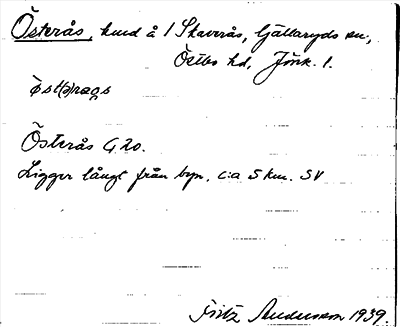 Österås, hmd å 1 Skaverås, Gällaryds sn.,
Östbo hd, Jönk. l.
Österås G 20.
Ligger långt från byn, c:a 5 km. SV
Fritz Andersson 1939.